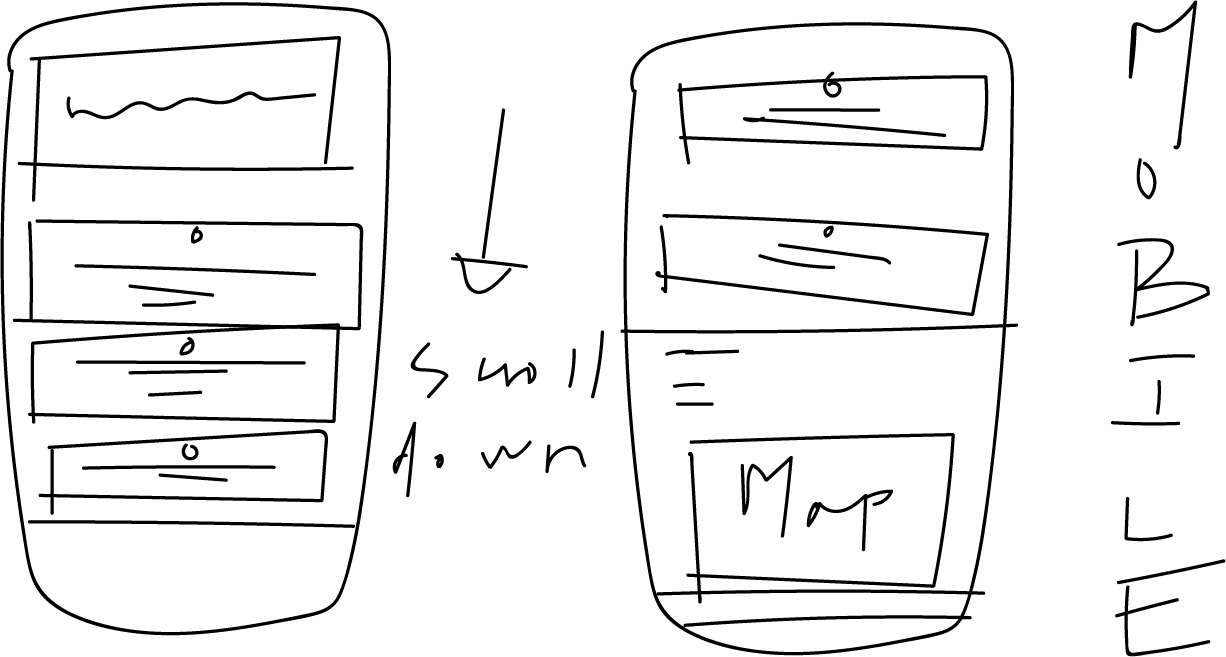 scroll
down
Map
MOBILE